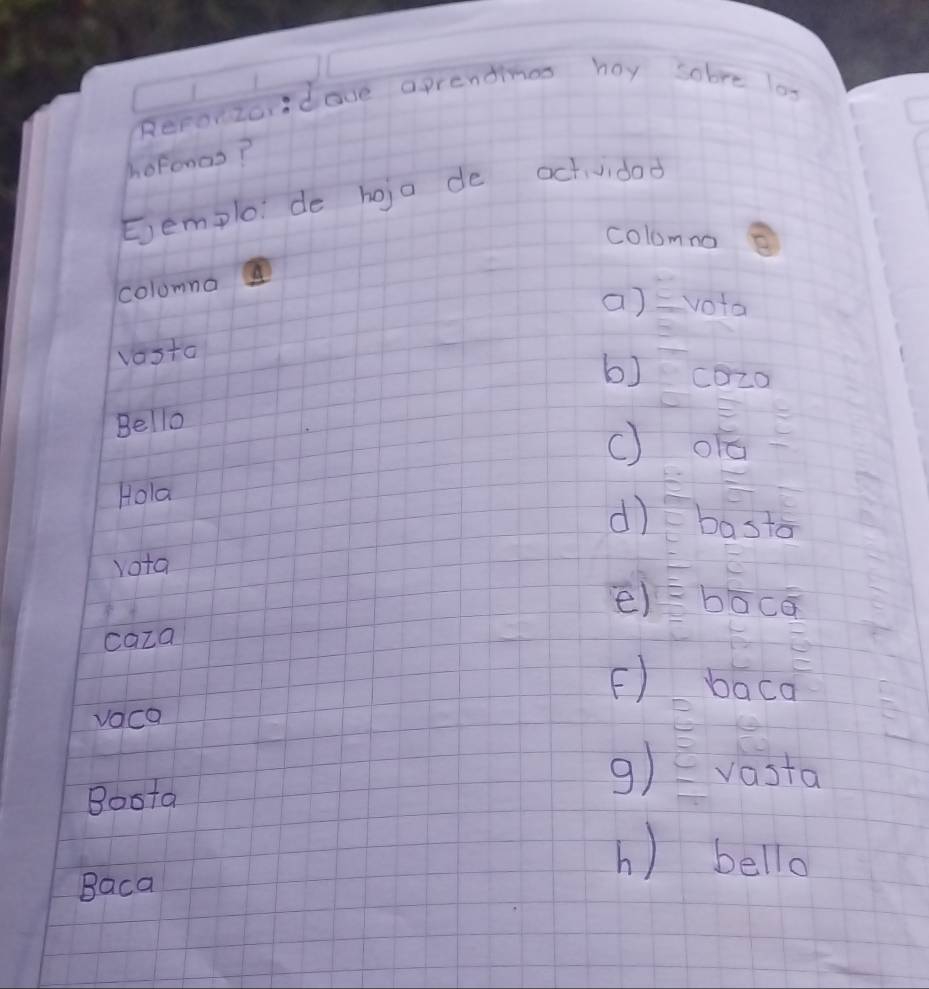 Reforzar: ¿que aprendimos hoy sobre las
hofonas?
Ejemplo: de hoja de actividad
columna A
columna B
vasta
a) vota
Bello
b) coza
Hola
c) ola
vota
d) basta
caza
e) baca
vaca
F) baca
Basta
g) vasta
Baca
h) bello